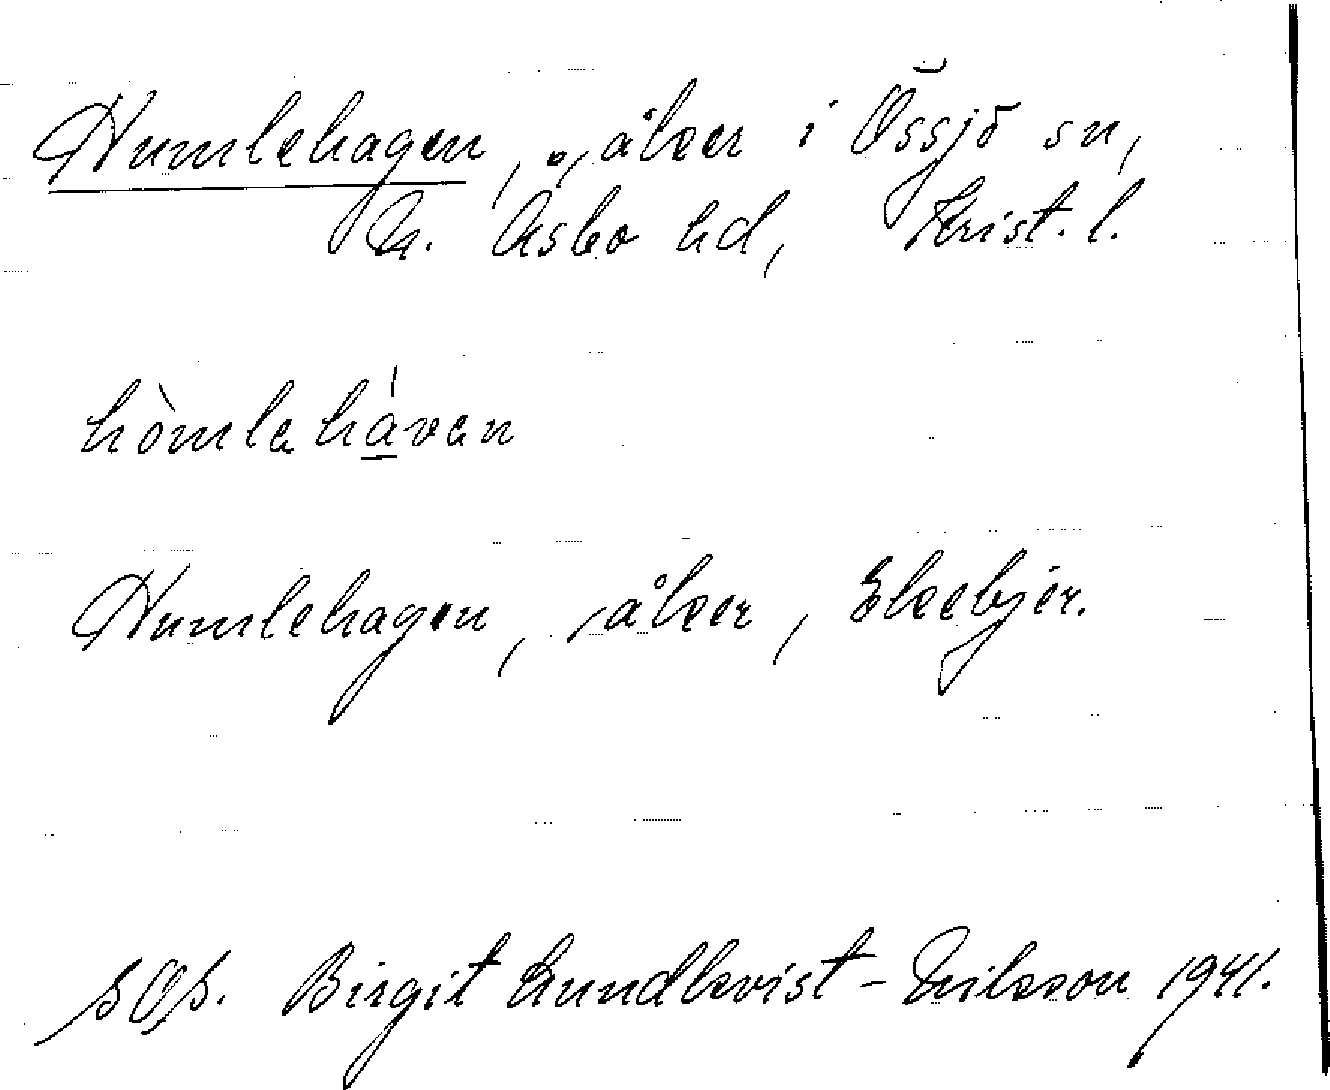 Humlehagen, åker i Össjö sn,
N. Åsbo hd, Krist. l.
hòmlahάvan
Humlehagen, åker, Ekebjer.
Birgit Lundkvist-Nilsson 1941.